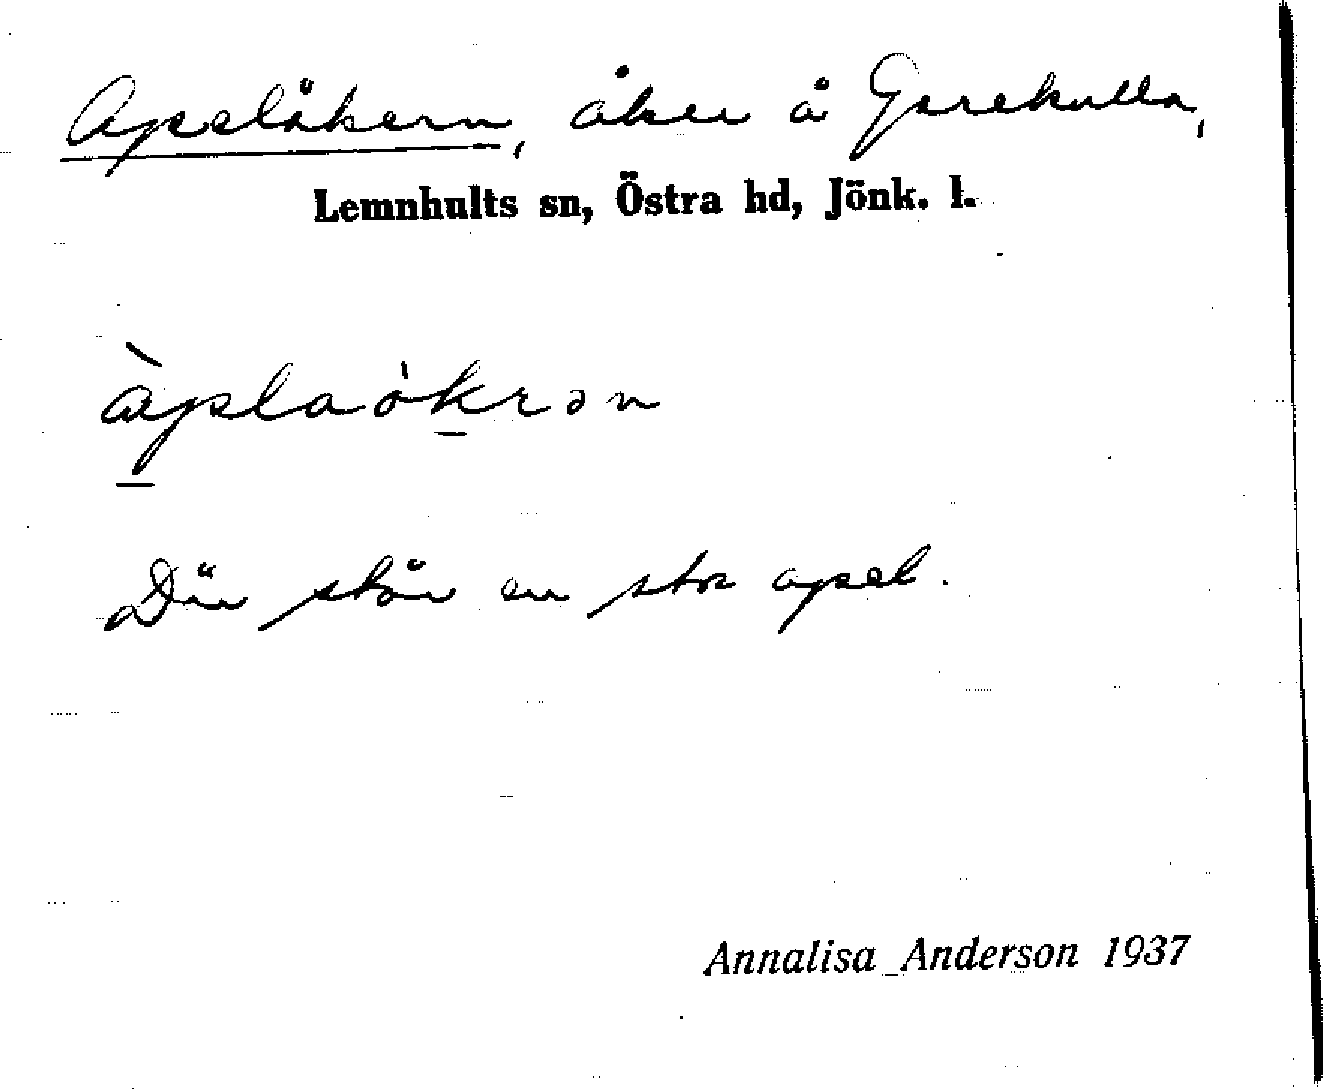 Apelåkern, åker å Garekulla,
Lemnhults sn, Östra hd, Jönk. l.
àplaòkrən
Där står en stor apel.
Annalisa Anderson 1937